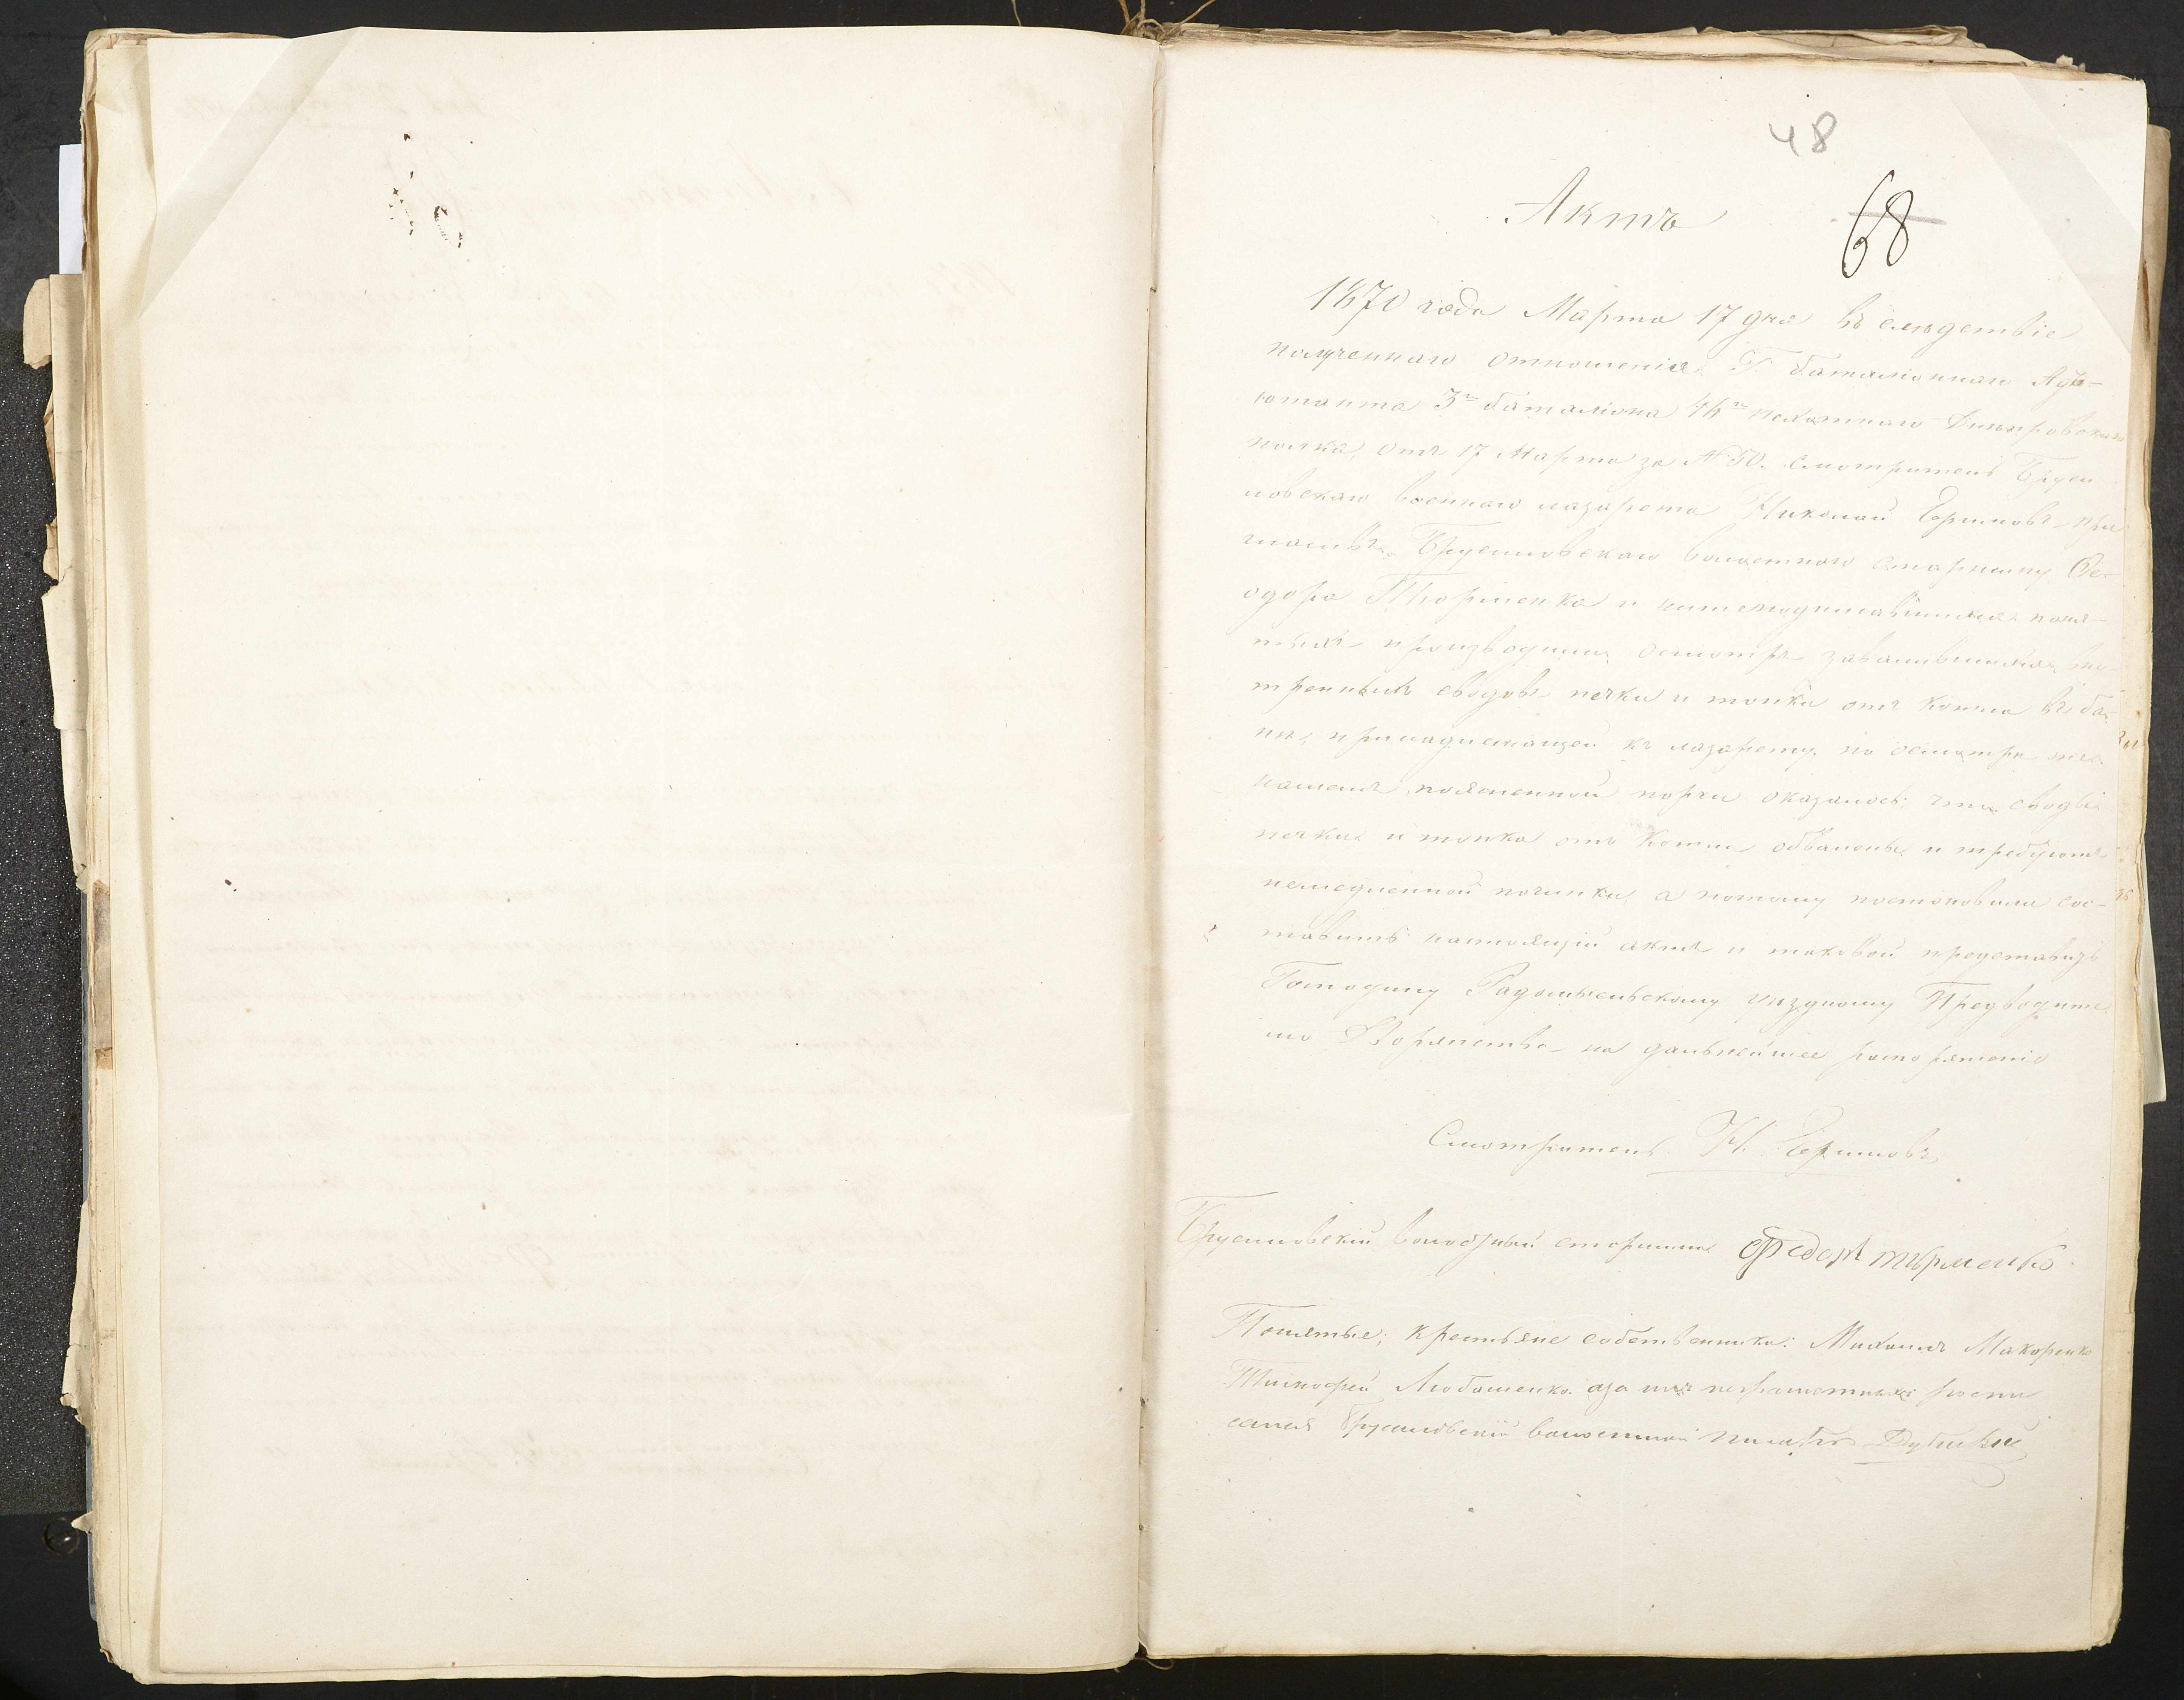 48
Актъ
68
1870 года Марта 17 дня въ слѣдствіе
полученнаго отношенія Г. баталіоннаго Адъ-
ютанта 3го баталіона 46го пехотнаго Днѣпровскаго
полка, отъ 17 Марта за № 50. Смотритель Бруси-
ловскаго военнаго лазарета Николай при
гласивъ Брусиловскаго волостнаго старшину Ѳе-
одора Тюрменка и нижеподписавшихся поня-
тыхъ производили осмотръ завалившихся вну-
тренныхъ сводовъ печки и топки отъ котла въ ба-
нѣ, принадлежащей къ лазарету, по осмотрѣ же
нашемъ поясненной порчи оказалось: что своды
печки и топка отъ котла обвалены и требуютъ
немедленной починки, а потому постановили сос-
тавить настоящій актъ и таковой представить
Господину Радомысльскому уѣздному Предводите
лю Дворянства на дальнейшее распоряженіе
Смотритель Н.
Брусиловскій волостный старшина Федоръ тюрменко
Понятые; крестьяне собственники: Михаилъ Макаренко
Тимофей Любашенко. а за нихъ неграмотныхъ роспи
сался Брусиловскій волостной писарь